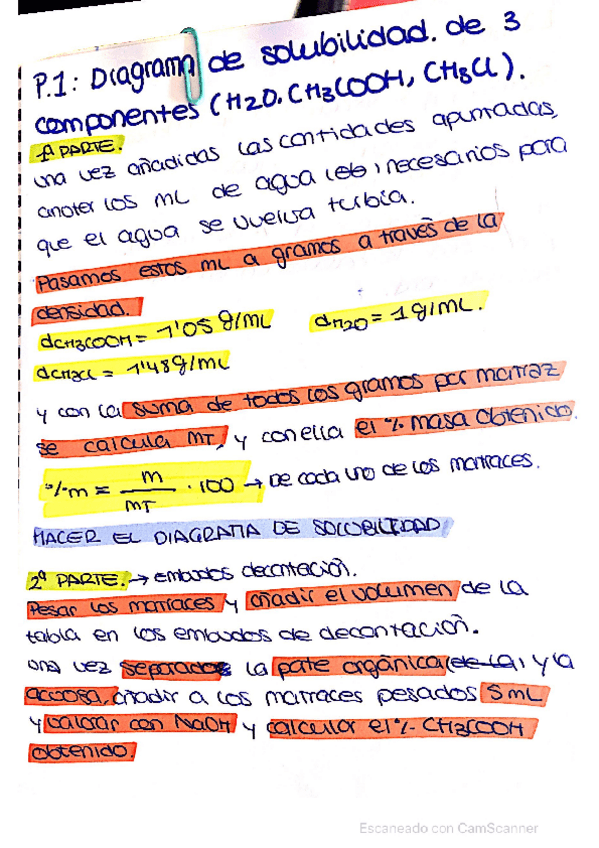 P.1: Diagrama de solubilidad. de 3
componentes (H2O. CH3COOH, CH3Cl).
1ª PARTE.
una vez añadidas las cantidades apuntadas,
anoter los mL de agua necesarios para
que el agua se vuelva turbia.
Pasamos estos mL a gramos a través de la
densidad.
dCH3COOH = 1'05 g/mL dH2O = 1 g/mL.
dCH3Cl = 1'48 g/mL
y con la suma de todos los gramos por matraz
se calcula MT, y con ella el % masa obtenido.
%m = m / MT · 100 → De cada uno de los matraces.
HACER EL DIAGRAMA DE SOLUBILIDAD
2ª PARTE. → embudos decantación.
Pesar los matraces y añadir el volumen de la
tabla en los embudos de decantación.
una vez separados la pate orgánica (de la, y la
acuosa, añadir a los matraces pesados 5 mL
y valorar con NaOH y calculor el % CH3COOH
obtenido.
Escaneado con CamScanner